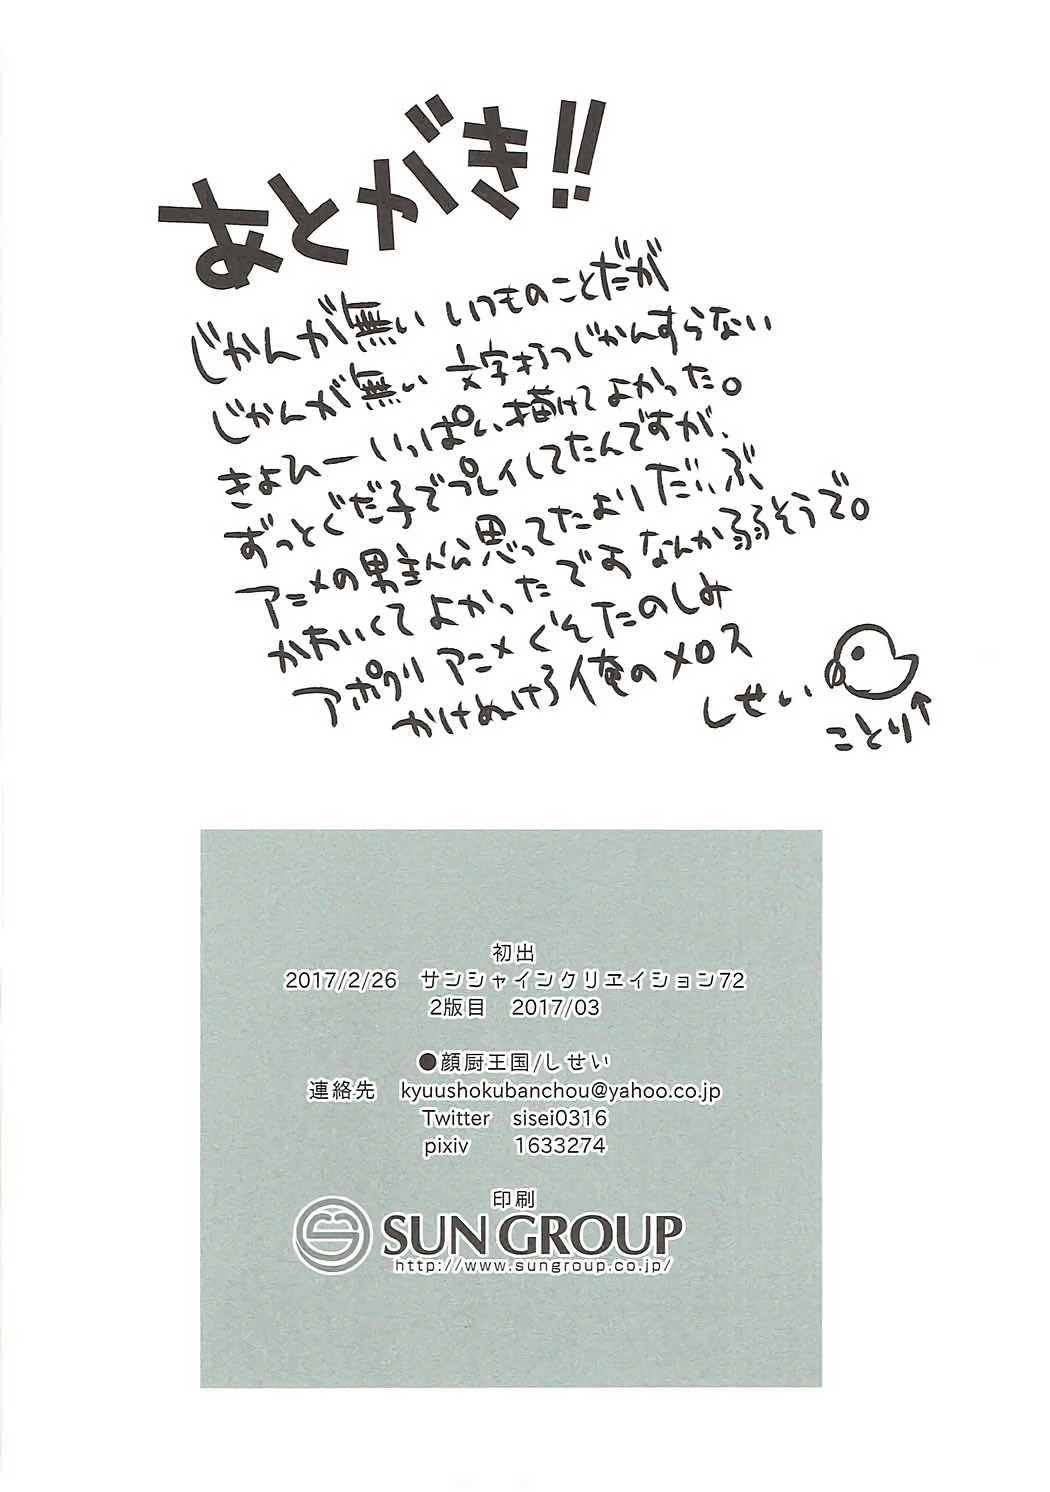 あとがき!!
じかんが無い いつものことだが
じかんが無い 文字打つじかんすらない
きよひーいっぱい描けてよかった。
ずっとぐだ子でプレイしてたんですが、
アニメの男主人公思ってたよりだいぶ
かわいくてよかったです なんか弱そうで。
アポクリアニメぐそたのしみ
かけぬけろ俺のメロス
しせい
ことり↑
初出
2017/2/26 サンシャインクリエイション72
2版目 2017/03
●顔厨王国/しせい
連絡先 kyuushokubanchou@yahoo.co.jp
Twitter sisei0316
pixiv 1633274
印刷
SUN GROUP
http://www.sungroup.co.jp/